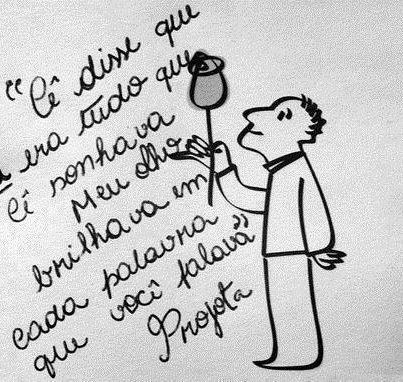 "Cê disse que
era tudo que
cê sonhava
Meu olho
brilhava em
cada palavra
que você falava"
Projota